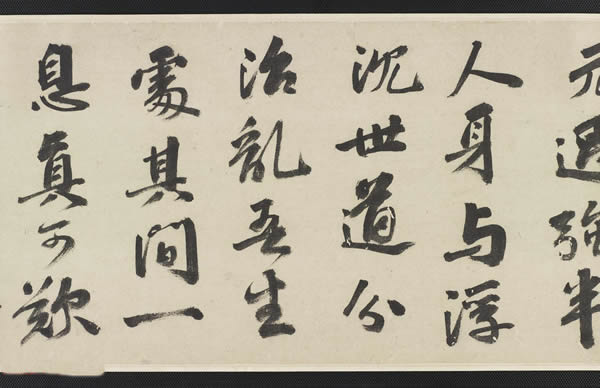 元過強半
人身与浮
沉世道分
治亂吾生
處其間一
息真可歎